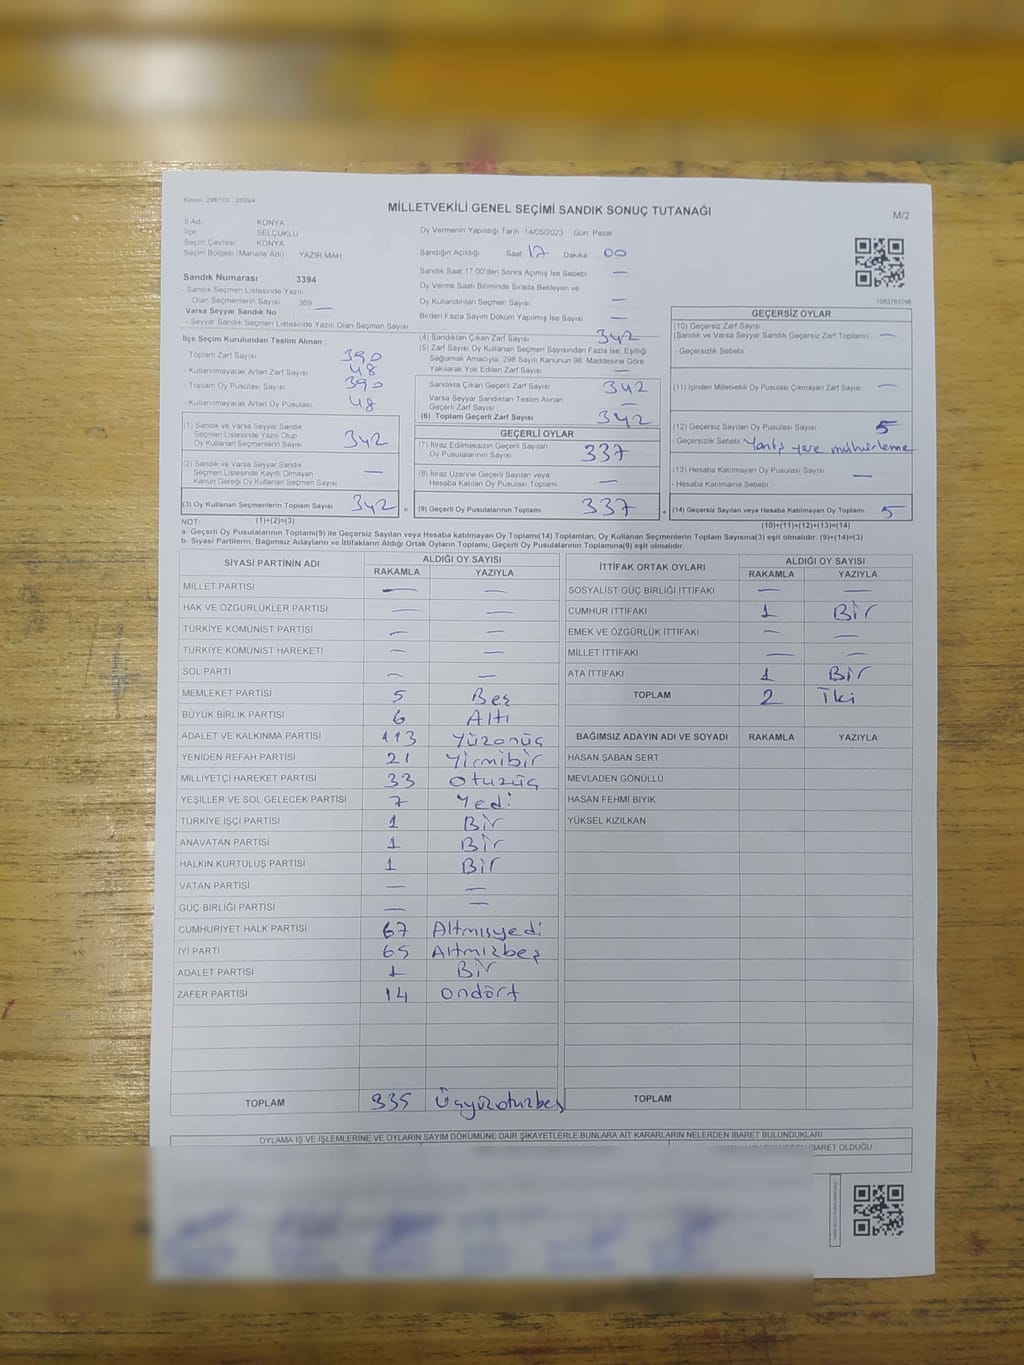 Kanun: 298/105 2839/4
MİLLETVEKİLİ GENEL SEÇİMİ SANDIK SONUÇ TUTANAĞI
M/2
İl Adı KONYA
İlçe SELÇUKLU
Seçim Çevresi KONYA
Seçim Bölgesi (Mahalle Adı) YAZIR MAH
Oy Vermenin Yapıldığı Tarih 14/05/2023 Gün: Pazar
Sandığın Açıldığı Saat 17 Dakika 00
Sandık Saat 17:00'den Sonra Açımış İse Sebebi —
Oy Verme Saati Bitiminde Sırada Bekleyen ve
Oy Kullandırılan Seçmen Sayısı —
Birden Fazla Sayım Döküm Yapılmış İse Sayısı —
Sandık Numarası :3394
- Sandık Seçmen Listesinde Yazılı
Olan Seçmenlerin Sayısı 369
Varsa Seyyar Sandık No —
- Seyyar Sandık Seçmen Listesinde Yazılı Olan Seçmen Sayısı
İlçe Seçim Kurulundan Teslim Alınan :
- Toplam Zarf Sayısı 390
- Kullanılmayarak Artan Zarf Sayısı 48
- Toplam Oy Pusulası Sayısı 390
- Kullanılmayarak Artan Oy Pusulası 48
(1) Sandık ve Varsa Seyyar Sandık
Seçmen Listesinde Yazılı Olup
Oy Kullanan Seçmenlerin Sayısı 342
(2) Sandık ve Varsa Seyyar Sandık
Seçmen Listesinde Kayıtlı Olmayan
Kanun Gereği Oy Kullanan Seçmen Sayısı —
(3) Oy Kullanan Seçmenlerin Toplam Sayısı 342 =
(1)+(2)=(3)
(4) Sandıktan Çıkan Zarf Sayısı 342
(5) Zarf Sayısı Oy Kullanan Seçmen Sayısından Fazla İse, Eşitliği
Sağlamak Amacıyla, 298 Sayılı Kanunun 98. Maddesine Göre
Yakılarak Yok Edilen Zarf Sayısı —
Sandıkta Çıkan Geçerli Zarf Sayısı 342
Varsa Seyyar Sandıktan Teslim Alınan
Geçerli Zarf Sayısı —
(6) Toplam Geçerli Zarf Sayısı 342
GEÇERLİ OYLAR
(7) İtiraz Edilmeksizin Geçerli Sayılan
Oy Pusulalarının Sayısı 337
(8) İtiraz Üzerine Geçerli Sayılan veya
Hesaba Katılan Oy Pusulası Toplamı —
(9) Geçerli Oy Pusulalarının Toplamı 337 +
1083793796
GEÇERSİZ OYLAR
(10) Geçersiz Zarf Sayısı
(Sandık ve Varsa Seyyar Sandık Geçersiz Zarf Toplamı) —
- Geçersizlik Sebebi
(11) İçinden Milletvekili Oy Pusulası Çıkmayan Zarf Sayısı —
(12) Geçersiz Sayılan Oy Pusulası Sayısı 5
- Geçersizlik Sebebi Yanlış yere mühürleme
(13) Hesaba Katılmayan Oy Pusulası Sayısı —
- Hesaba Katılmama Sebebi
(14) Geçersiz Sayılan veya Hesaba Katılmayan Oy Toplamı 5
(10)+(11)+(12)+(13)=(14)
NOT:
a- Geçerli Oy Pusulalarının Toplamı(9) ile Geçersiz Sayılan veya Hesaba katılmayan Oy Toplamı(14) Toplamları, Oy Kullanan Seçmenlerin Toplam Sayısına(3) eşit olmalıdır. (9)+(14)=(3)
b- Siyasi Partilerin, Bağımsız Adayların ve İttifakların Aldığı Ortak Oyların Toplamı, Geçerli Oy Pusulalarının Toplamına(9) eşit olmalıdır.
SİYASİ PARTİNİN ADI ALDIĞI OY SAYISI
RAKAMLA YAZIYLA
MİLLET PARTİSİ — —
HAK VE ÖZGÜRLÜKLER PARTİSİ — —
TÜRKİYE KOMÜNİST PARTİSİ — —
TÜRKİYE KOMÜNİST HAREKETİ — —
SOL PARTİ — —
MEMLEKET PARTİSİ 5 Beş
BÜYÜK BİRLİK PARTİSİ 6 Altı
ADALET VE KALKINMA PARTİSİ 113 Yüzonüç
YENİDEN REFAH PARTİSİ 21 Yirmibir
MİLLİYETÇİ HAREKET PARTİSİ 33 Otuzüç
YEŞİLLER VE SOL GELECEK PARTİSİ 7 Yedi
TÜRKİYE İŞÇİ PARTİSİ 1 Bir
ANAVATAN PARTİSİ 1 Bir
HALKIN KURTULUŞ PARTİSİ 1 Bir
VATAN PARTİSİ — —
GÜÇ BİRLİĞİ PARTİSİ — —
CUMHURİYET HALK PARTİSİ 67 Altmışyedi
İYİ PARTİ 65 Altmızbeş
ADALET PARTİSİ 1 Bir
ZAFER PARTİSİ 14 Ondört
TOPLAM 335 Üçyüzotuzbeş
İTTİFAK ORTAK OYLARI ALDIĞI OY SAYISI
RAKAMLA YAZIYLA
SOSYALİST GÜÇ BİRLİĞİ İTTİFAKI — —
CUMHUR İTTİFAKI 1 Bir
EMEK VE ÖZGÜRLÜK İTTİFAKI — —
MİLLET İTTİFAKI — —
ATA İTTİFAKI 1 Bir
TOPLAM 2 İki
BAĞIMSIZ ADAYIN ADI VE SOYADI RAKAMLA YAZIYLA
HASAN ŞABAN SERT
MEVLADEN GÖNÜLLÜ
HASAN FEHMİ BIYIK
YÜKSEL KIZILKAN
TOPLAM
OYLAMA İŞ VE İŞLEMLERİNE VE OYLARIN SAYIM DÖKÜMÜNE DAİR ŞİKAYETLERLE BUNLARA AİT KARARLARIN NELERDEN İBARET BULUNDUKLARI
İBARET OLDUĞU